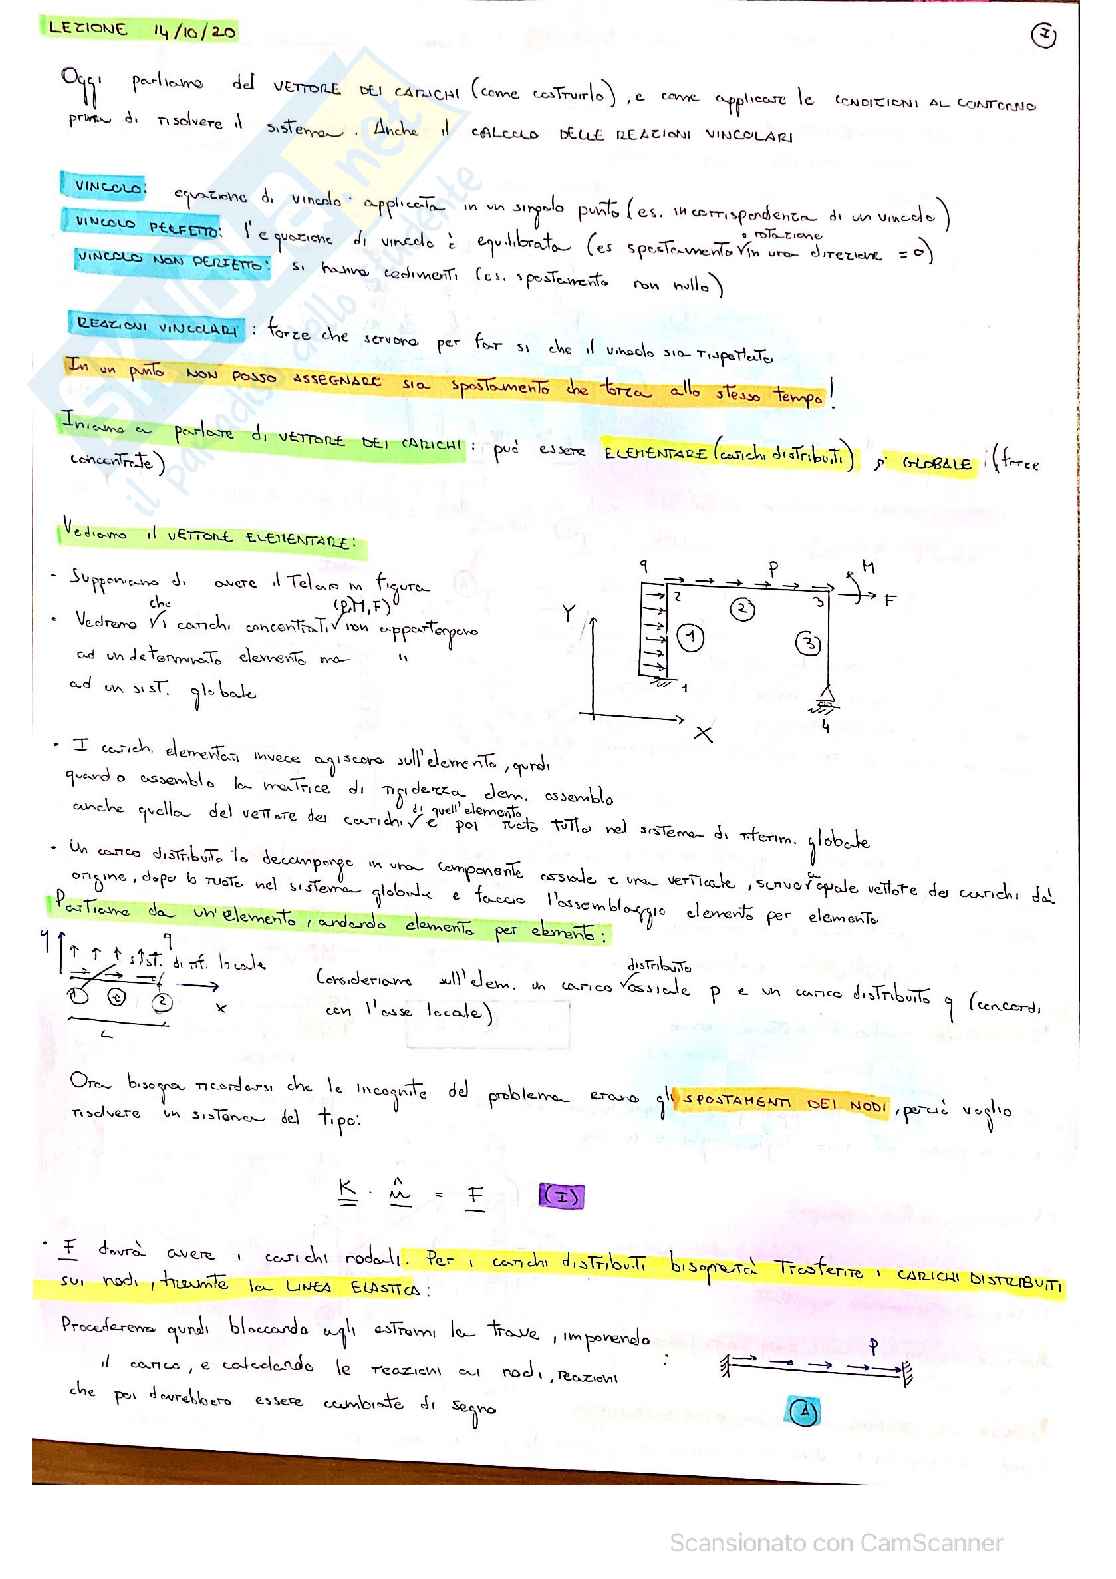 LEZIONE 14/10/20
I
Oggi parliamo del VETTORE DEI CARICHI (come costruirlo), e come applicare le CONDIZIONI AL CONTORNO
prima di risolvere il sistema. Anche il CALCOLO DELLE REAZIONI VINCOLARI
VINCOLO: equazione di vincolo applicata in un singolo punto (es. in corrispondenza di un vincolo)
VINCOLO PERFETTO: l'equazione di vincolo è equilibrata (es spostamento o rotazione in una direzione = 0)
VINCOLO NON PERFETTO: si hanno cedimenti (es. spostamento non nullo)
REAZIONI VINCOLARI: forze che servono per far si che il vincolo sia rispettato
In un punto NON POSSO ASSEGNARE sia spostamento che forza allo stesso tempo!
Iniziamo a parlare di VETTORE DEI CARICHI: può essere ELEMENTARE (carichi distribuiti) GLOBALE (forze
concentrate)
Vediamo il VETTORE ELEMENTARE:
- Supponiamo di avere il Telaio in figura
- Vedremo che i carichi concentrati (P,M,F) non appartengono
ad un determinato elemento ma "
ad un sist. globale
q P M
2 3 F
2
1 3
Y
1
4
X
- I carichi elementari invece agiscono sull'elemento, quindi
quando assemblo la matrice di rigidezza elem. assemblo
anche quella del vettore dei carichi di quell'elemento e poi ruoto tutto nel sistema di riferim. globale
- Un carico distribuito lo decompongo in una componente assiale e una verticale, scrivo quale vettore dei carichi dà
origine, dopo lo ruoto nel sistema globale e faccio l'assemblaggio elemento per elemento
Partiamo da un'elemento, andando elemento per elemento:
y q
sist. di rif. locale
1 e 2 x
L
Consideriamo sull'elem. un carico distribuito assiale p e un carico distribuito q (concordi
con l'asse locale)
Ora bisogna ricordarsi che le incognite del problema erano gli SPOSTAMENTI DEI NODI, perciò voglio
risolvere un sistema del tipo:
K · û = F (I)
· F dovrà avere i carichi nodali. Per i carichi distribuiti bisognerà Trasferire i CARICHI DISTRIBUITI
sui nodi, tramite la LINEA ELASTICA:
Procederemo quindi bloccando agli estremi la trave, imponendo
il carico, e calcolando le reazioni ai nodi, reazioni :
che poi dovrebbero essere cambiate di segno
P
1
SKUOLA.net
il paradiso dello studente
Scansionato con CamScanner